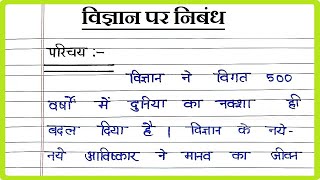 विज्ञान पर निबंध
परिचय :-
विज्ञान ने विगत 500
वर्षों में दुनिया का नक्शा ही
बदल दिया है | विज्ञान के नये-
नये आविष्कार ने मानव का जीवन